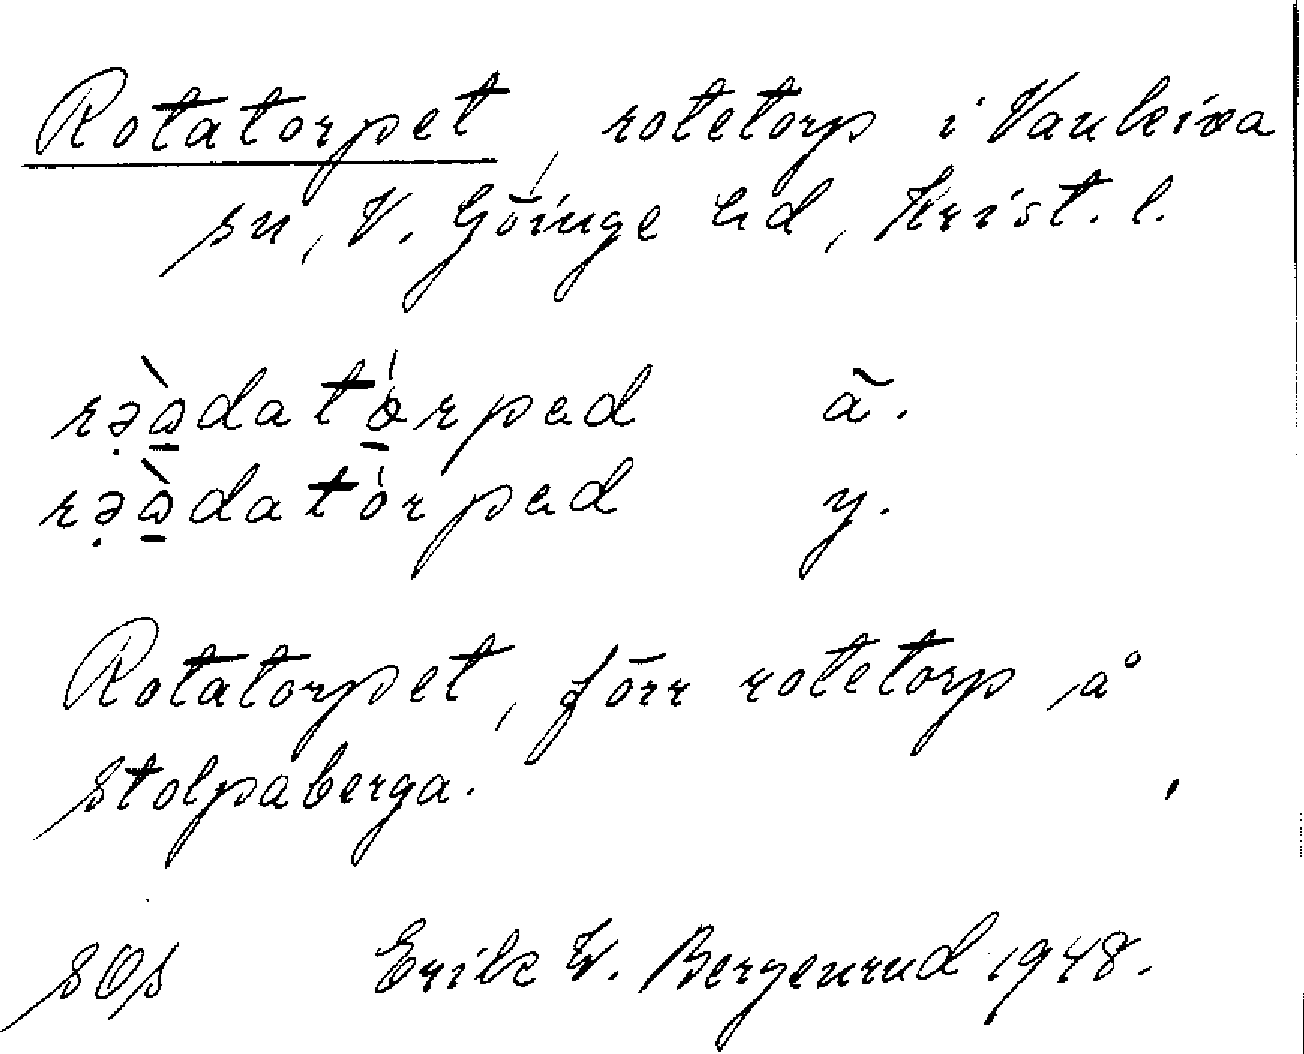 Rotatorpet, rotetorp i Vankiva
sn, V. Göinge hd, Krist. l.
rə̣ɷ̱̀datórpad ã.
rə̣ɷ̱̀datórpad y.
Rotatorpet, förr rotetorp å
Stolpaberga.
SOS Erik W. Bergenrud 1948.